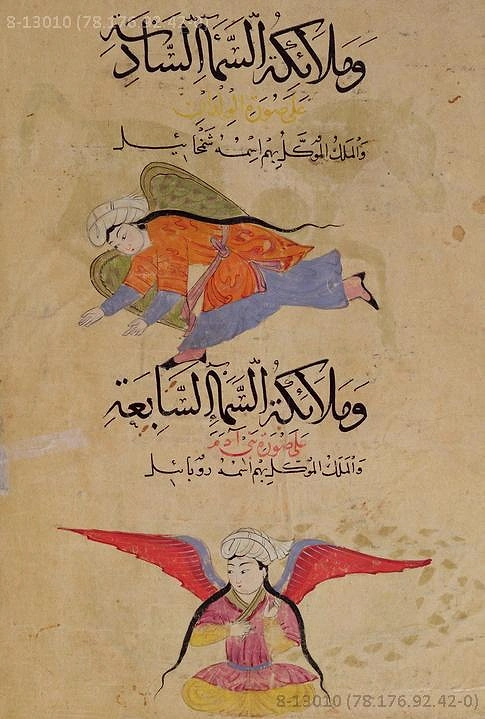 8-13010 (78.176.92.42-0)
وَمَلَائِكَةُ السَّمَآءِ السَّادِسَةِ
عَلَى صُورَةِ الوِلْدَانِ
وَالمَلَكُ المُوَكَّلُ بِهِم اسْمُهُ شَمْخَائِيل
وَمَلَائِكَةُ السَّمَآءِ السَّابِعَةِ
عَلَى صُورَةِ بَنِي آدَمَ
وَالمَلَكُ المُوَكَّلُ بِهِم اسْمُهُ رُوبَائِيل
8-13010 (78.176.92.42-0)